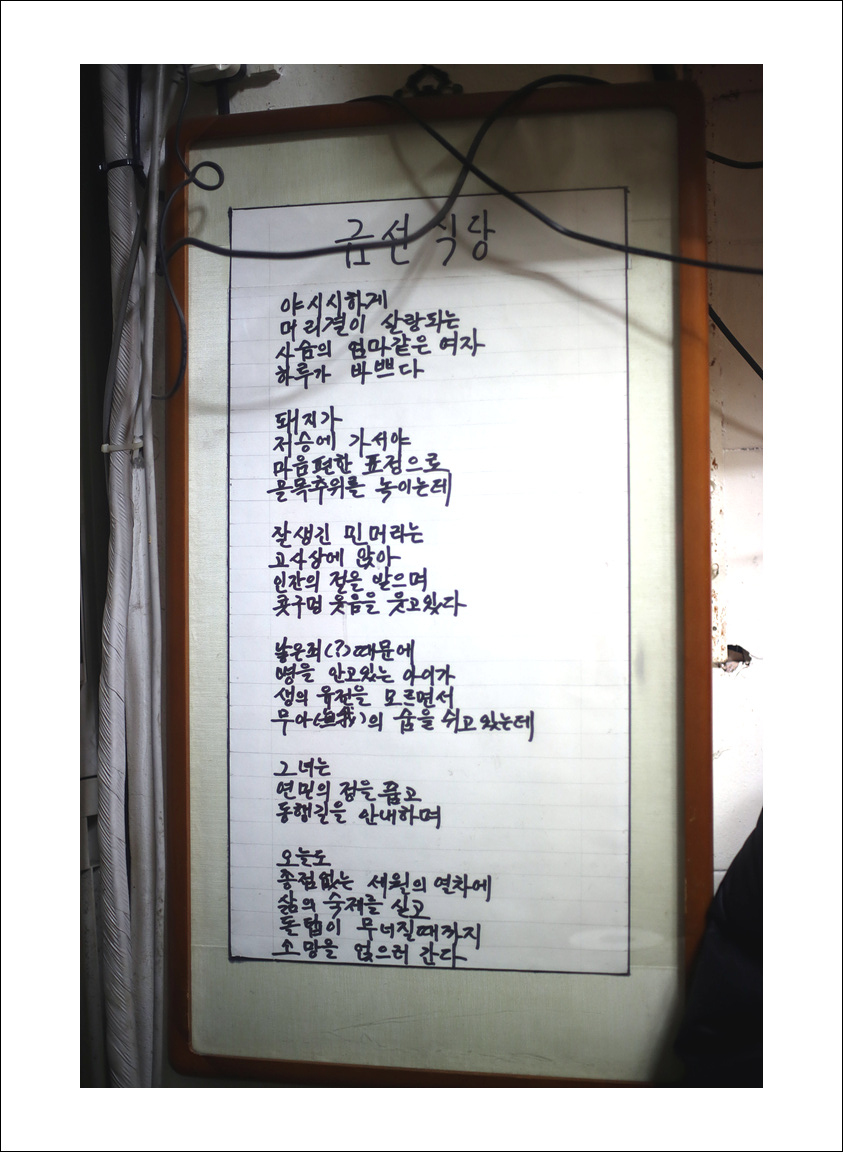 금선 식당
야시시하게
머리결이 찰랑되는
사슴의 엄마같은 여자
하루가 바쁘다
돼지가
저승에 가서야
마음편한 표정으로
골목추위를 녹이는데
잘생긴 민머리는
고사상에 앉아
인간의 절을 받으며
콧구멍 웃음을 웃고있다
낳은죄(?)때문에
병을 안고있는 아이가
생의 유전을 모르면서
무아(無我)의 숨을 쉬고 있는데
그녀는
연민의 정을 품고
동행길을 안내하며
오늘도
종점없는 세월의 열차에
삶의 숙제를 싣고
돌탑이 무너질때까지
소망을 얹으러 간다